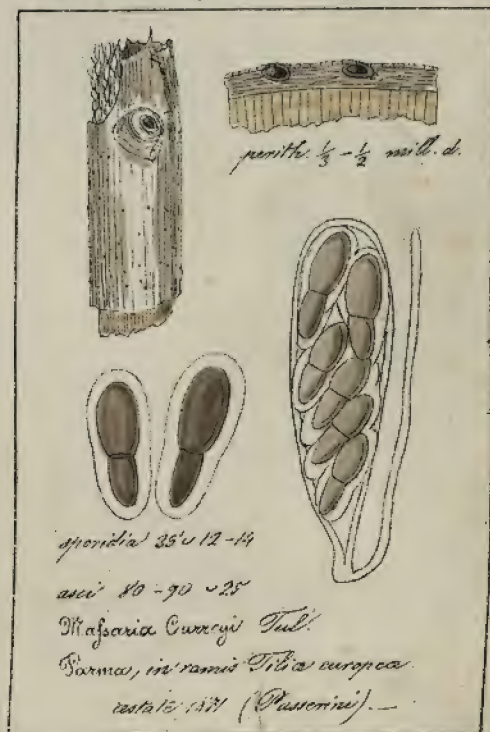 perith. ⅓ - ½ mill. d.
sporidia 35 ᴗ 12-14
asci 80-90 ᴗ 25
Maſsaria Curreyi Tul.
Parma, in ramis Tilia europea
aestate 1871 (Passerini). —